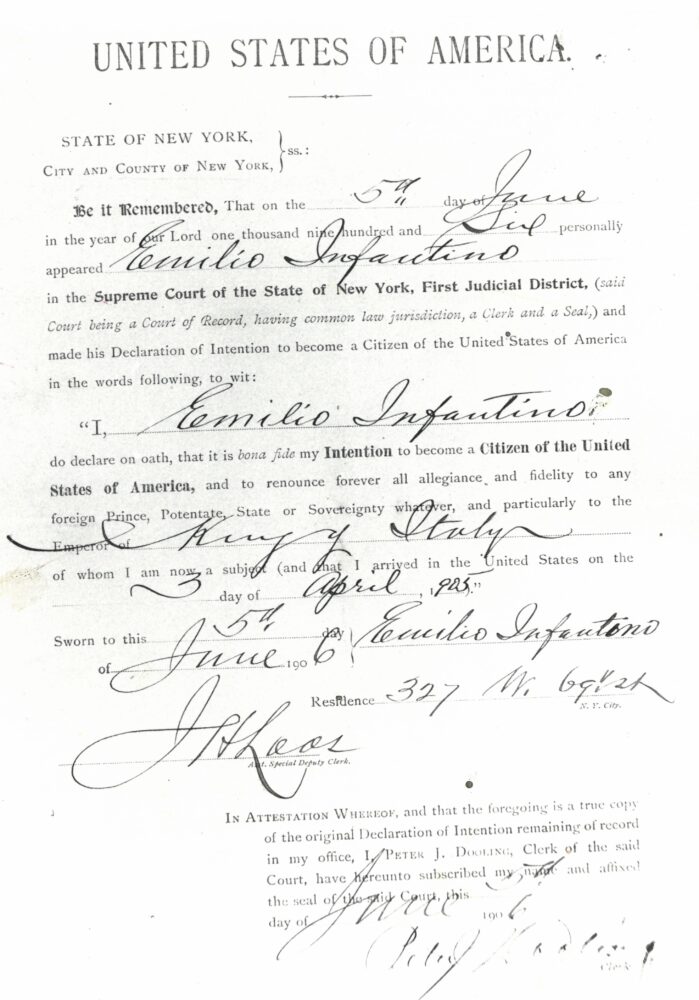 UNITED STATES OF AMERICA.
STATE OF NEW YORK,
CITY AND COUNTY OF NEW YORK, } ss.:
Be it Remembered, That on the 5th day of June
in the year of our Lord one thousand nine hundred and Six personally
appeared Emilio Infantino
in the Supreme Court of the State of New York, First Judicial District, (said
Court being a Court of Record, having common law jurisdiction, a Clerk and a Seal,) and
made his Declaration of Intention to become a Citizen of the United States of America
in the words following, to wit:
"I, Emilio Infantino
do declare on oath, that it is bona fide my Intention to become a Citizen of the United
States of America, and to renounce forever all allegiance and fidelity to any
foreign Prince, Potentate, State or Sovereignty whatever, and particularly to the
Emperor of King of Italy
of whom I am now a subject (and that I arrived in the United States on the
3 day of April, 1905."
Sworn to this 5th day } Emilio Infantino
of June 1906
Residence 327 W. 69th st
N. Y. City.
J H Loos
Asst. Special Deputy Clerk.
IN ATTESTATION WHEREOF, and that the foregoing is a true copy
of the original Declaration of Intention remaining of record
in my office, I, PETER J. DOOLING, Clerk of the said
Court, have hereunto subscribed my name and affixed
the seal of the said Court, this 5th
day of June 1906
Peter J Dooling
Clerk